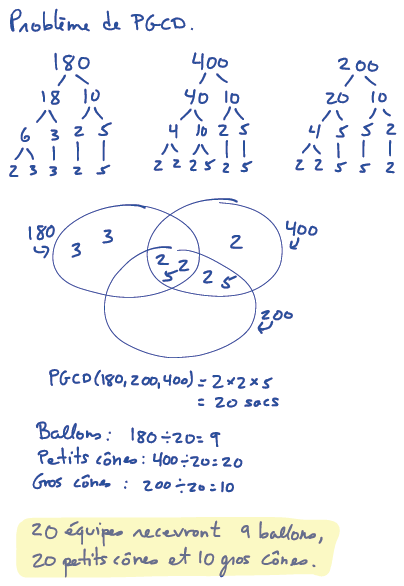 Problème de PGCD.
180 400 200
18 10 40 10 20 10
6 3 2 5 4 10 2 5 4 5 5 2
2 3 3 2 5 2 2 2 5 2 5 2 2 5 5 2
180 3 3 2 2 5 2 5 2 400
200
PGCD(180,200,400) = 2×2×5
= 20 sacs
Ballons: 180÷20=9
Petits cônes: 400÷20=20
Gros cônes : 200÷20=10
20 équipes recevront 9 ballons,
20 petits cônes et 10 gros cônes.